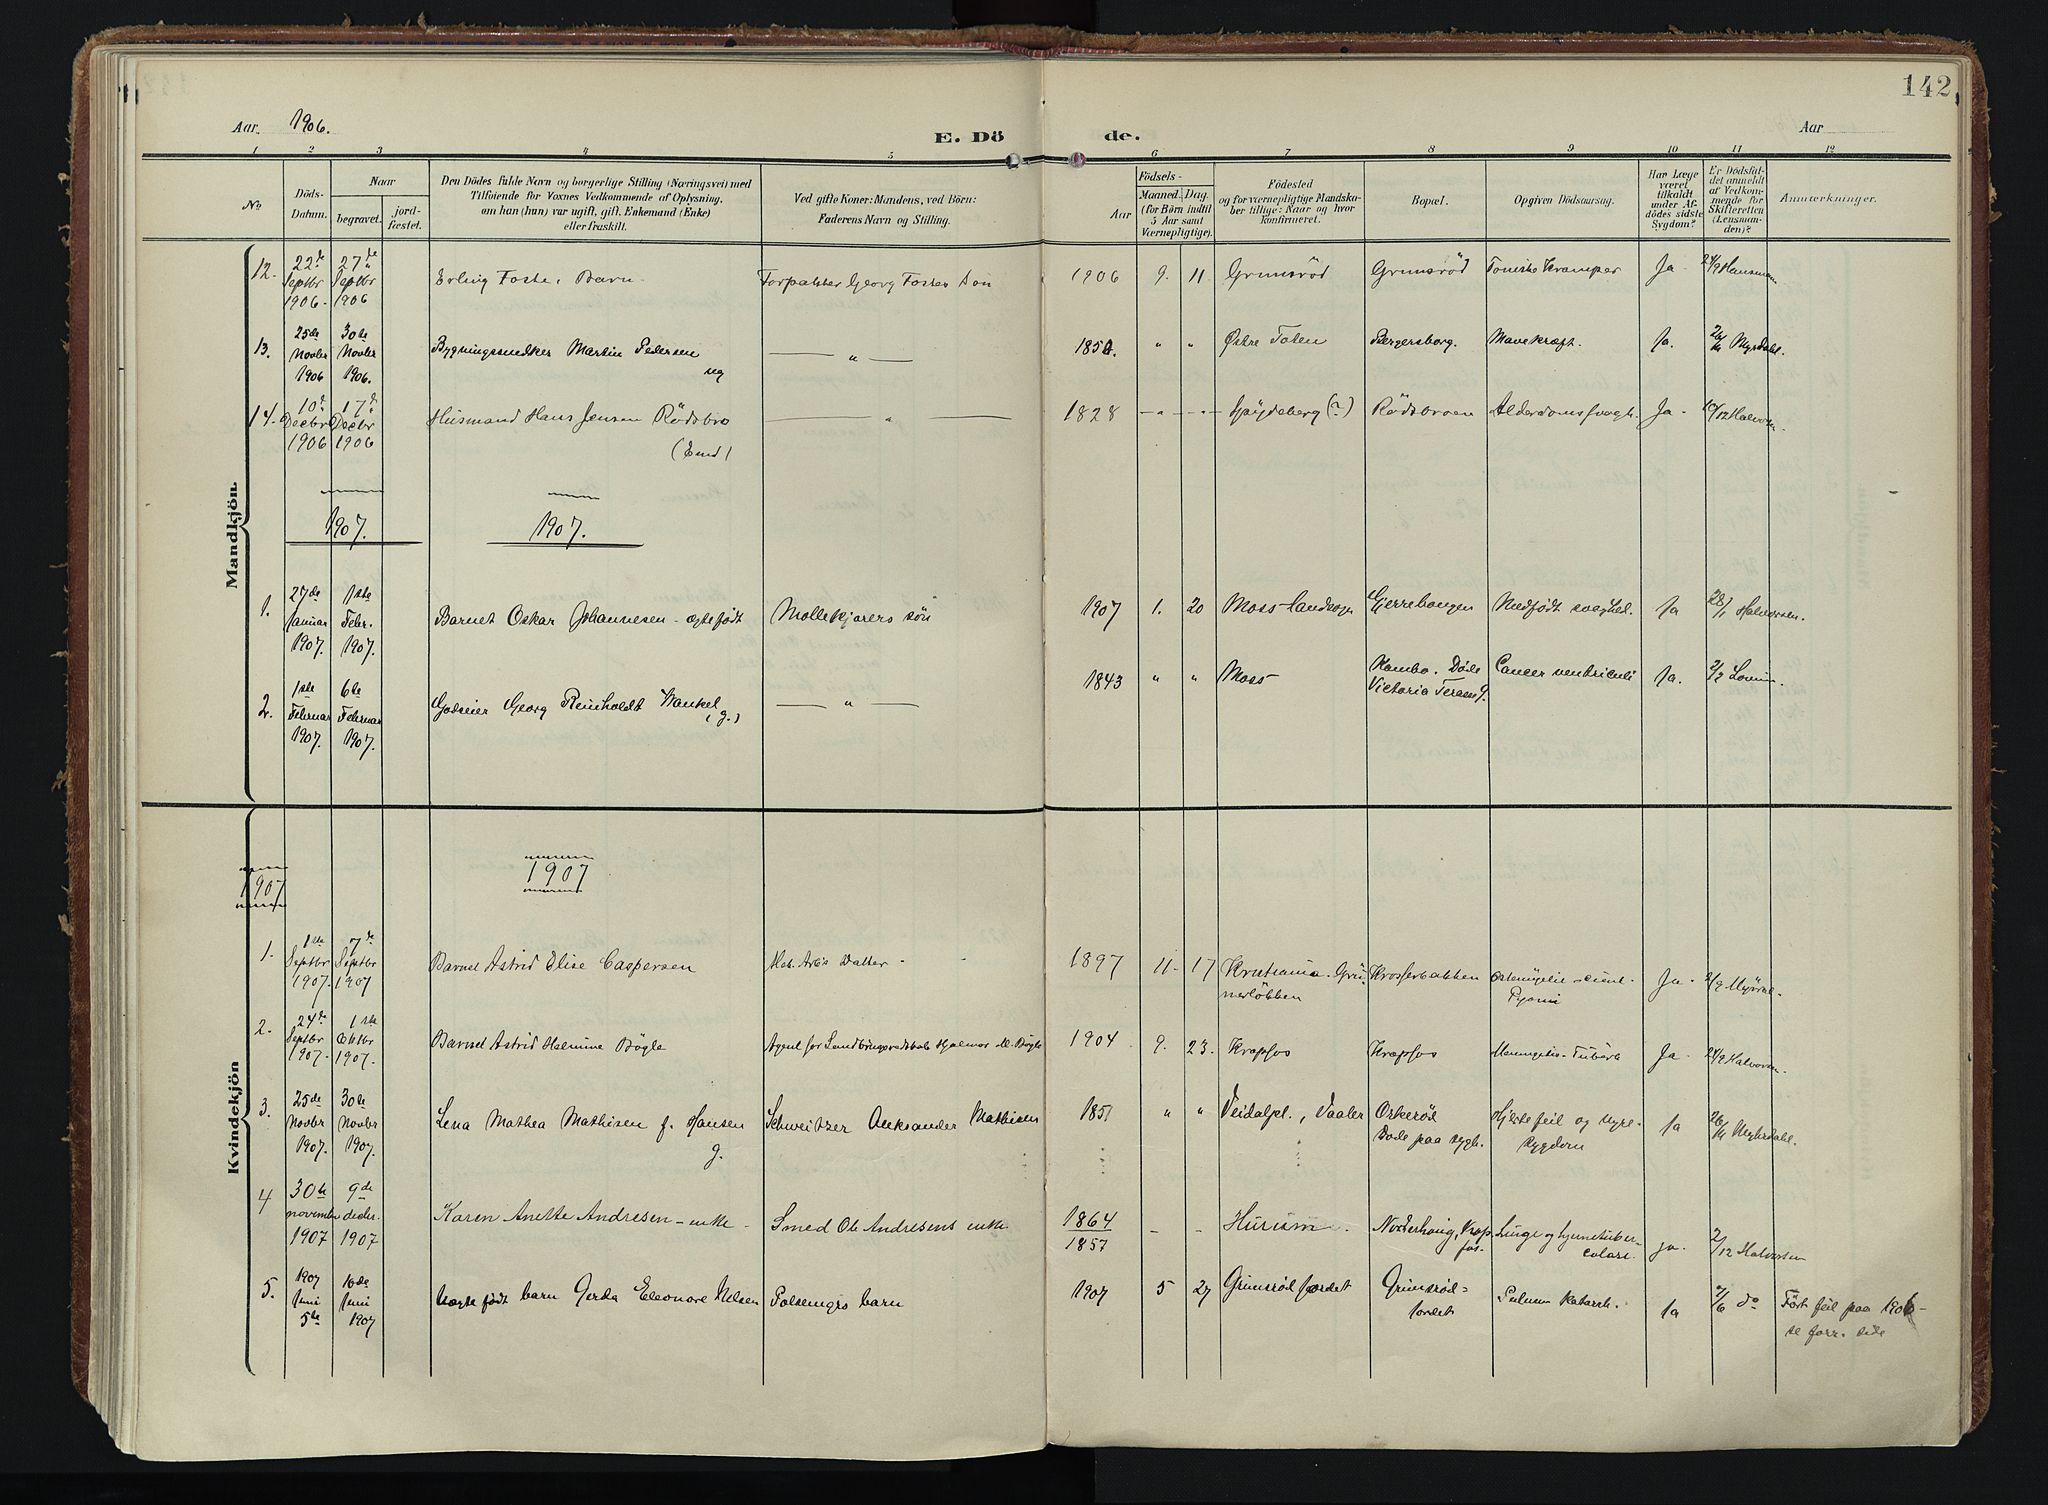 142
Aar 1906.
E. Dö de.
Aar
1 2 3 4 5 6 7 8 9 10 11 12
No.
Döds-Datum.
Naar
begravet.
jord-fæstet.
Den Dödes fulde Navn og borgerlige Stilling (Næringsvei) med
Tilföiende for Voxnes Vedkommende af Oplysning,
om han (hun) var ugift, gift, Enkemand (Enke)
eller fraskilt.
Ved gifte Koner: Mandens, ved Börn:
Faderens Navn og Stilling.
Födsels-
Aar
Maaned. Dag.
(for Börn indtil
5 Aar samt
Værnepligtige).
Födested
og for værnepligtige Mandska-
ber tillige: Naar og hvor
konfirmeret.
Bopæl.
Opgiven Dödsaarsag.
Har Læge
været
tilkaldt
under Af-
dödes sidste
Sygdom?
Er Dödsfal-
det anmeldt
af Vedkom-
mende for
Skifteretten
(Lensman-
den)?
Anmærkninger.
Mandkjön.
12. 22de Septbr 1906 27de Septbr 1906 Erling Foste, Barn Forpakter Georg Fostes Søn 1906 9. 11. Grimsrød Grimsrød Toniske Kramper Ja 24/9
13. 25de Novbr 1906 30te Novbr 1906. Bygningssnedker Martin Pedersen ug — " — 185 " " Østre Toten Bergersborg. Mavekræft. Ja. 26/11 Myrdahl.
14. 10de Decbr 1906 17de Decbr 1906 Husmand Hans Jensen Rödsbro (Enkd) — " — 1828 " " Spydeberg (?) Rødsbroen Alderdomssvagh. Ja 10/12 Halvorsen.
1907. 1907.
1. 27de Januar 1907. 1ste Febr. 1907. Barnet Oskar Johannesen - ægtefødt Møllekjørers søn 1907 1. 20 Moss Landsogn Gjerrebogen Medfødt svaghed. Ja 28/1 Halvorsen.
2. 1ste Februar 1907. 6te Februar 1907. Godseier Georg Reinholdt Wankel (g.) — " — 1843 " " Moss Kambo. Døde Victoria Terasse 9. Cancer ventriculi Ja. 2/2
Kvindekjön
1907 1907
1. 1ste Septbr 1907. 7de Septbr 1907 Barnet Astrid Elise Caspersen Datter 1897 11 17 Kristiania - Grü-nerløkken Krosserbakken Ostemyelit Pyæmi Ja 2/9
2. 24de Septbr 1907. 1ste Oktbr 1907. Barnet Astrid Helmine Bøgle Agent for Landbrugsredskab Hjalmar M. Bøgle 1904 9. 23. Krapfos Krapfos Meningitis Tuberk Ja 24/9 Halvorsen.
3. 25de Novbr 1907. 30te Novbr 1907. Lena Mathea Mathisen f. Hansen g. Schweitzer Aleksander Mathisen 1851 " " Veidalpl., Vaaler Oskerød Døde paa sygh. Hjertefeil og nyre-sygdom Ja 26/11 Myhrdahl.
4 30te november 1907 9de decbr. 1907 Karen Anette Andresen - enke - Smed Ole Andresens enke 1864 1857 - - Hurum Norderhaug, Krapfos. Lunge og hjernetuber-culose. ja. 2/12 Halvorsen
5. 1907 Juni 5te 16de Juni 1907 Uægte født barn Gerda Eleonore Nilsen 1907 5 27 Grimsrødfjordet Grimsrød-fjordet Katarrh. Ja 7/6 do Ført feil paa 1906 - se forr. side